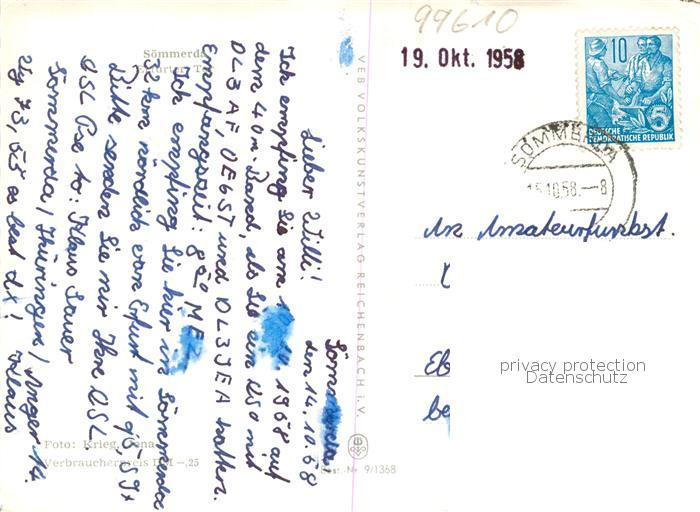 Sömmerda
Erfurter T
Sömmerda
den 14.10.58
Lieber Willi!
Ich empfing Sie am 1968 auf
dem 40m-Band, als Sie ein QSO mit
DL3AF, OE6ST und DL3JEA hatten.
Empfangszeit: 820 MEZ
Ich empfing Sie hier in Sömmerda
nördlich von Erfurt mit
Bitte senden Sie mir Ihre QSL.
QSL Pse to: Klaus Sauer
Sömmerda / Thüringen / Anger 14.
Vy 73, 55 es best dx! Klaus
Foto: Krieg, Jena
Verbraucherpreis DM -,25
VEB VOLKSKUNSTVERLAG REICHENBACH i.V.
Best.-Nr 9/1368
99610
19. Okt. 1958
10
5
DEUTSCHE
DEMOKRATISCHE REPUBLIK
SÖMMERDA
15.10.58.–8
An Amateurfunkst.
privacy protection
Datenschutz